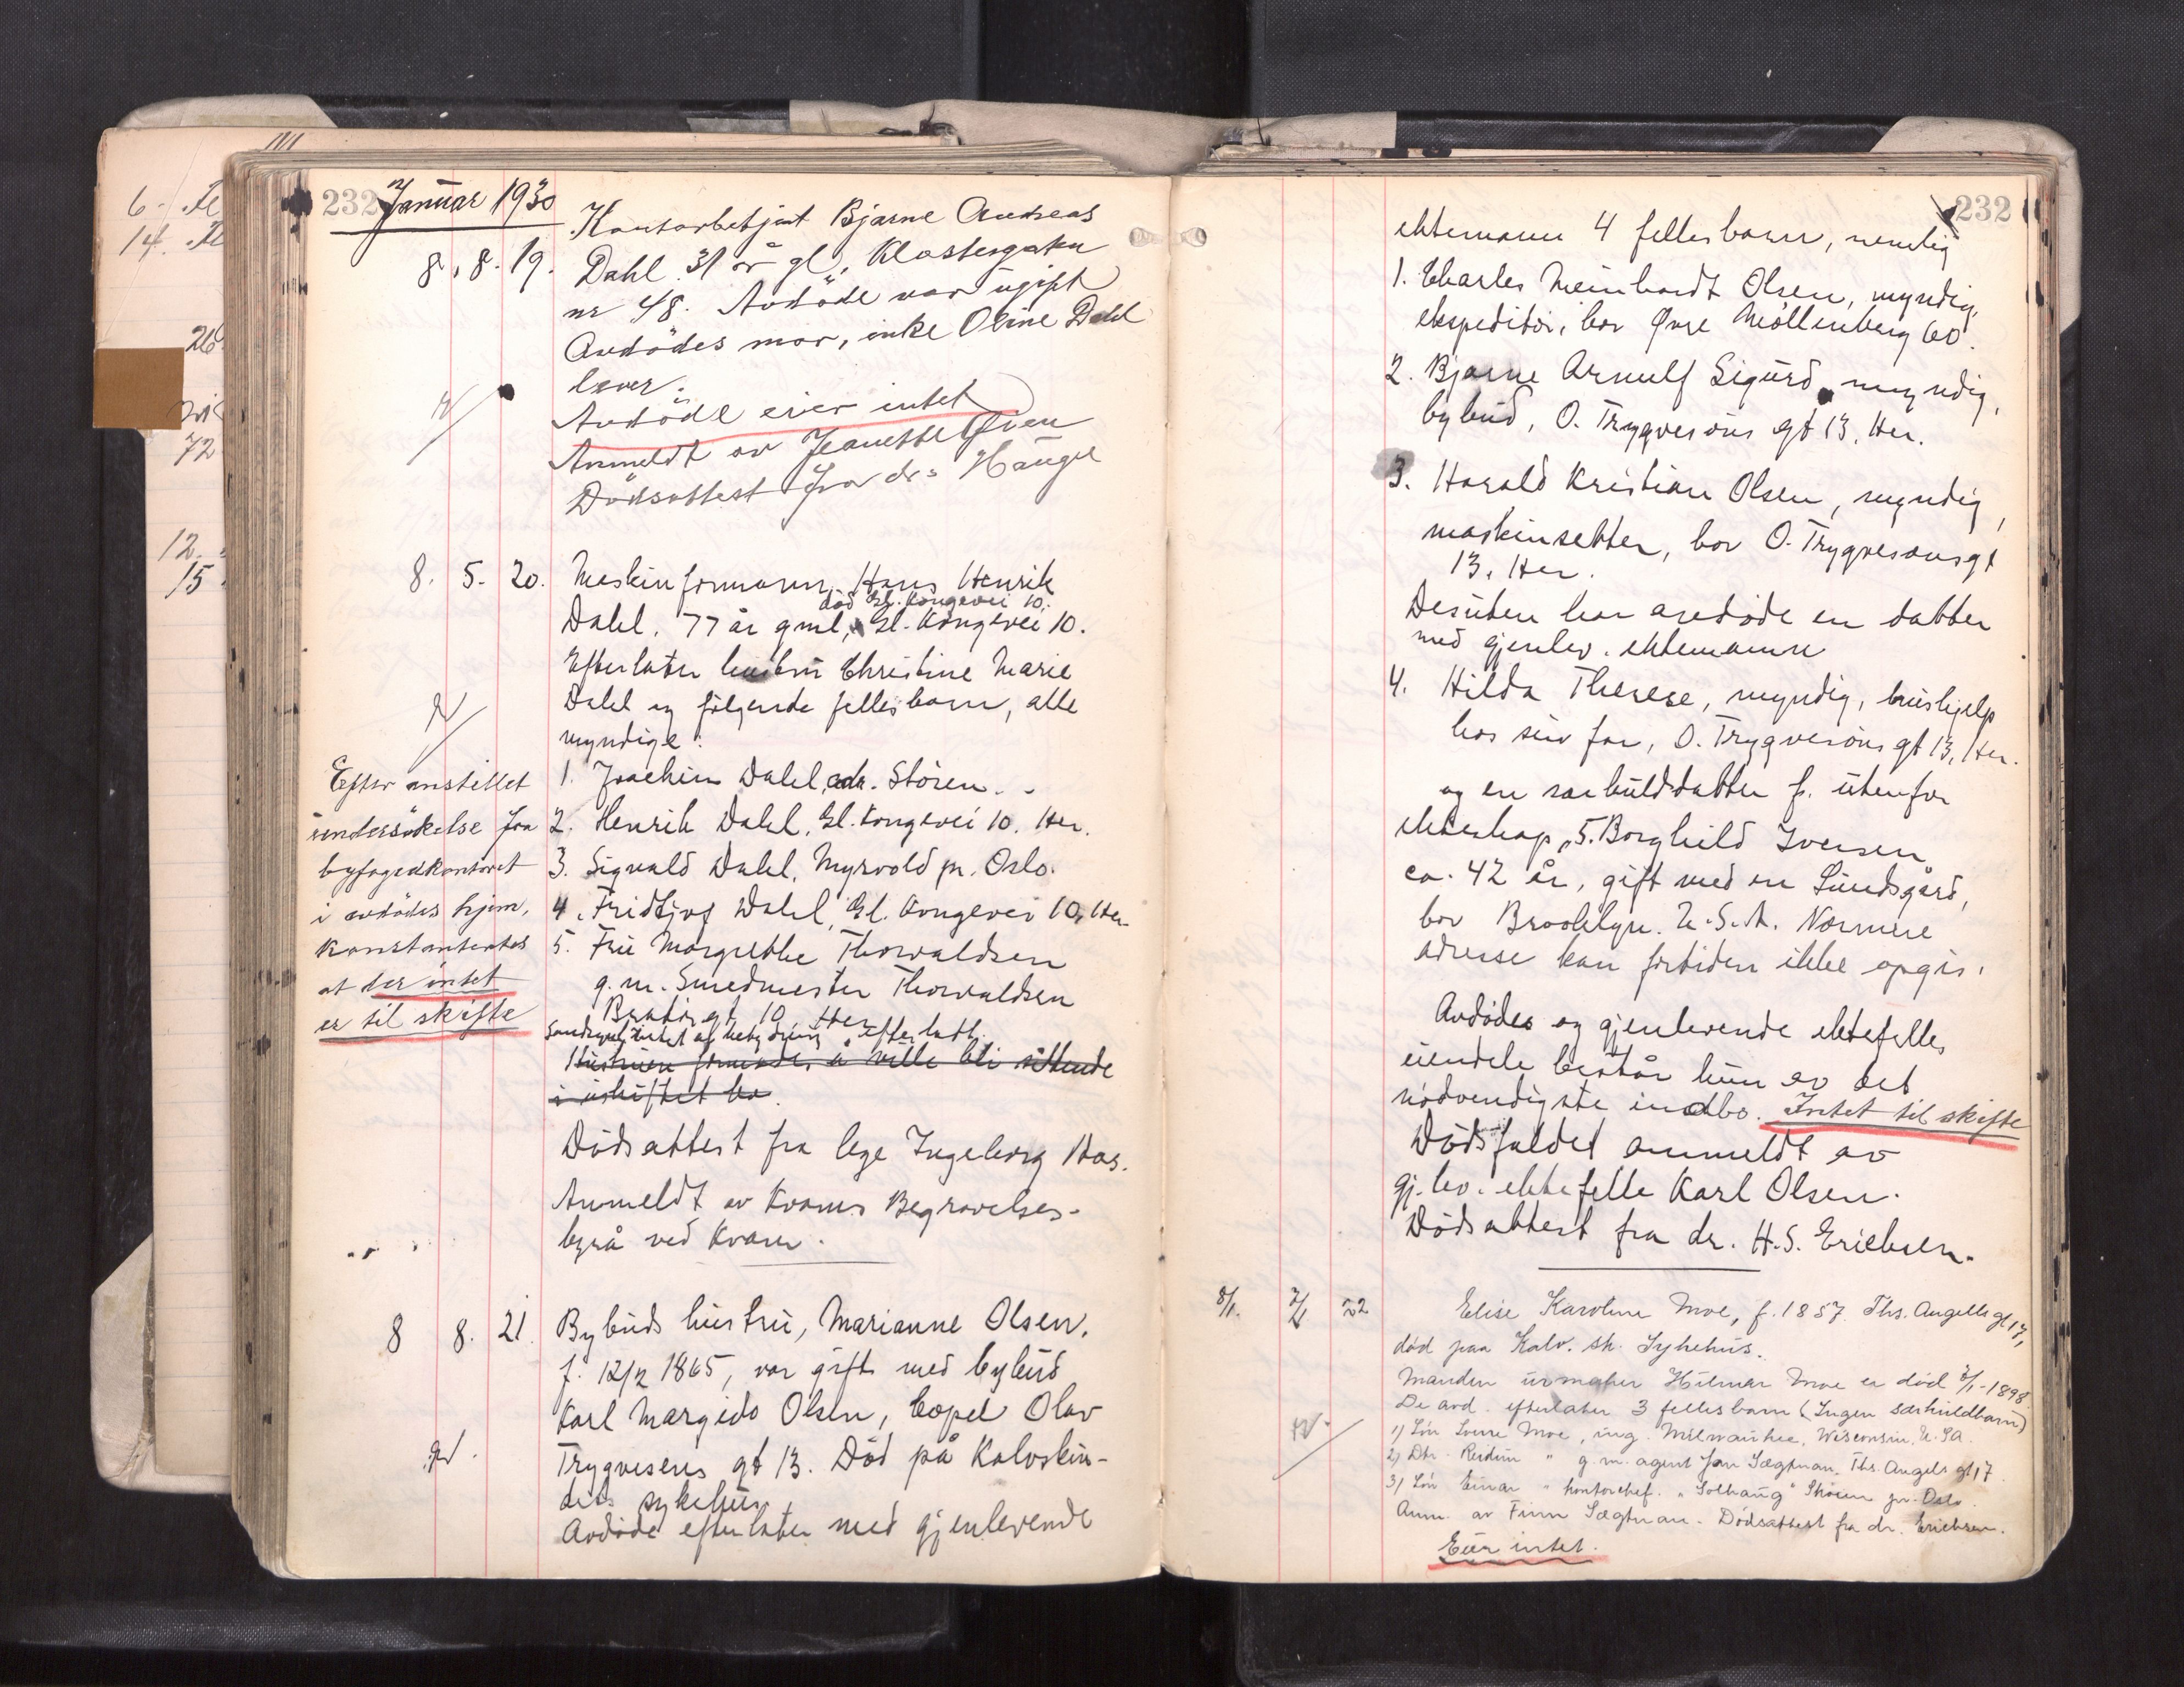 232 Januar 1930
8. 8. 19. Kontorbetjent Bjarne Andreas
Dahl 31 år gl, Klostergaten
nr 48. Avdöde var ugift
Avdödes mor, enke Oline Dahl
lever.
Avdöde eier intet
Anmeldt av Jeanette Öien
Dödsattest fra dr. Hauge
8. 5. 20. Maskinformann Hans Henrik
död Gl. Kongevei 10.
Dahl. 77 år gml, Gl. Kongevei 10.
Efterlater hustru Christine Marie
Dahl og følgende fellesbarn, alle
myndige:
1. Joachim Dahl, adr. Stören.
2. Henrik Dahl, Gl. Kongevei 10. Her.
3. Sigvald Dahl, Myrvold pr. Oslo.
4. Fridtjof Dahl, Gl. Kongevei 10, Her
5. Fru Margrethe Thorvaldsen
g.m. Smedmester Thorvaldsen
gt 10 Her
intet af betydning efterlatt.
Hustruen formodes å ville bli sittende
i uskiftet bo.
Dödsattest fra lege Ingeborg Aas.
Anmeldt av Kvams Begravelses-
byrå ved Kvam.
Efter anstillet
undersökelse fra
byfogedkontoret
i avdödes hjem,
konstantertes
at der intet
er til skifte
8 8. 21. Bybuds hustru, Marianne Olsen,
f. 12/2 1865, var gift med bybud
Karl Margido Olsen, bopel Olav
Trygvesens gt 13. Död på Kalvskin-
dets sykehus
Avdöde efterlater med gjenlevende
232
ektemann 4 fellesbarn, nemlig
1. Charles Meinhardt Olsen, myndig,
ekspeditör, bor Øvre Möllenberg 60.
2. Bjarne Arnulf Sigurd, myndig,
bybud, O. Trygvesöns gt 13, Her.
3. Harald Kristian Olsen, myndig,
maskinsetter, bor O. Trygvesonsgt
13, Her.
Desuten har avdöde en datter
med gjenlev. ektemann
4. Hilda Therese, myndig, hushjelp
hos sin far, O. Trygvesöns gt 13, Her.
og en særkulddatter f. utenfor
ekteskap, 5. Borghild Iversen,
ca. 42 år, gift med en Lundsgård,
bor Brooklyn. U.S.A. Nærmere
adresse kan fortiden ikke opgis.
Avdödes og gjenlevende ektefelles
eiendele består kun av det
nödvendigste indbo. Intet til skifte
Dödsfaldet anmeldt av
gj.lev. ektefelle Karl Olsen.
Dödsattest fra dr. H.S. Erichsen.
8/1. 2/1 22 Elise Karoline Moe, f. 1857. Ths. Angells gt 17,
död paa Kalv. sk. Sykehus.
Manden urmaker Hilmar Moe er död 7/1-1898.
De avd. efterlater 3 fellesbarn (Ingen særkuldbarn)
1) Sön Sverre Moe, ing. Milwaukee, Wisconsin, U.S.A.
2) Dtr. Reidun " g.m. agent Finn Sægtnan, Ths. Angells gt 17.
3) Sön Einar " kontorchef. "Solhaug" pr. Oslo.
Anm. av Finn Sægtnan. Dödsattest fra dr. Erichsen.
Eier intet.
6
14.
26
72
12.
15